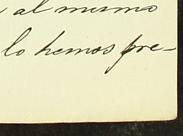 al mismo
lo hemos pre-